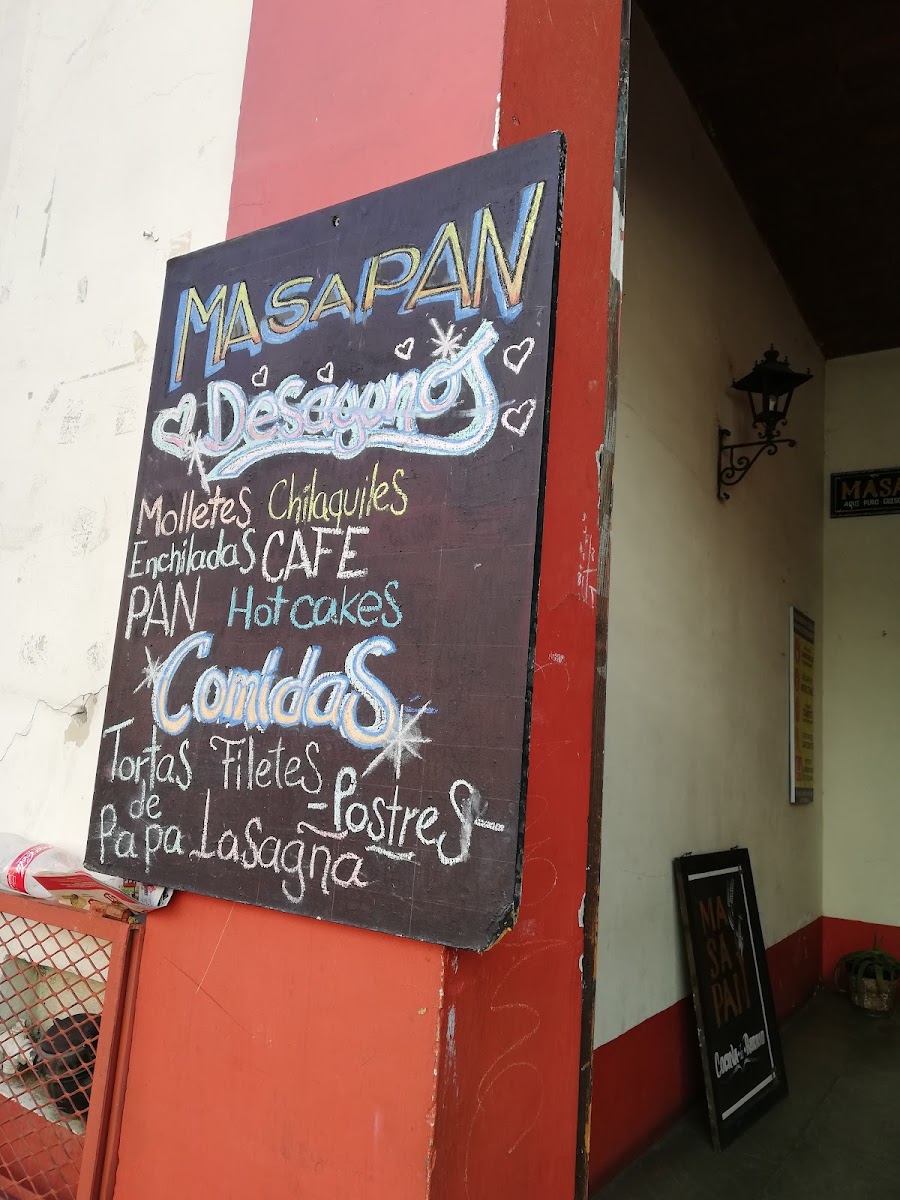 MASAPAN
Desáyunos
Molletes Chilaquiles
Enchiladas CAFE
PAN Hot cakes
Comidas
Tortas Filetes
de
Papa Lasagna
-Postres-
MASA
AQUI PURO
MA
SA Y
PAN